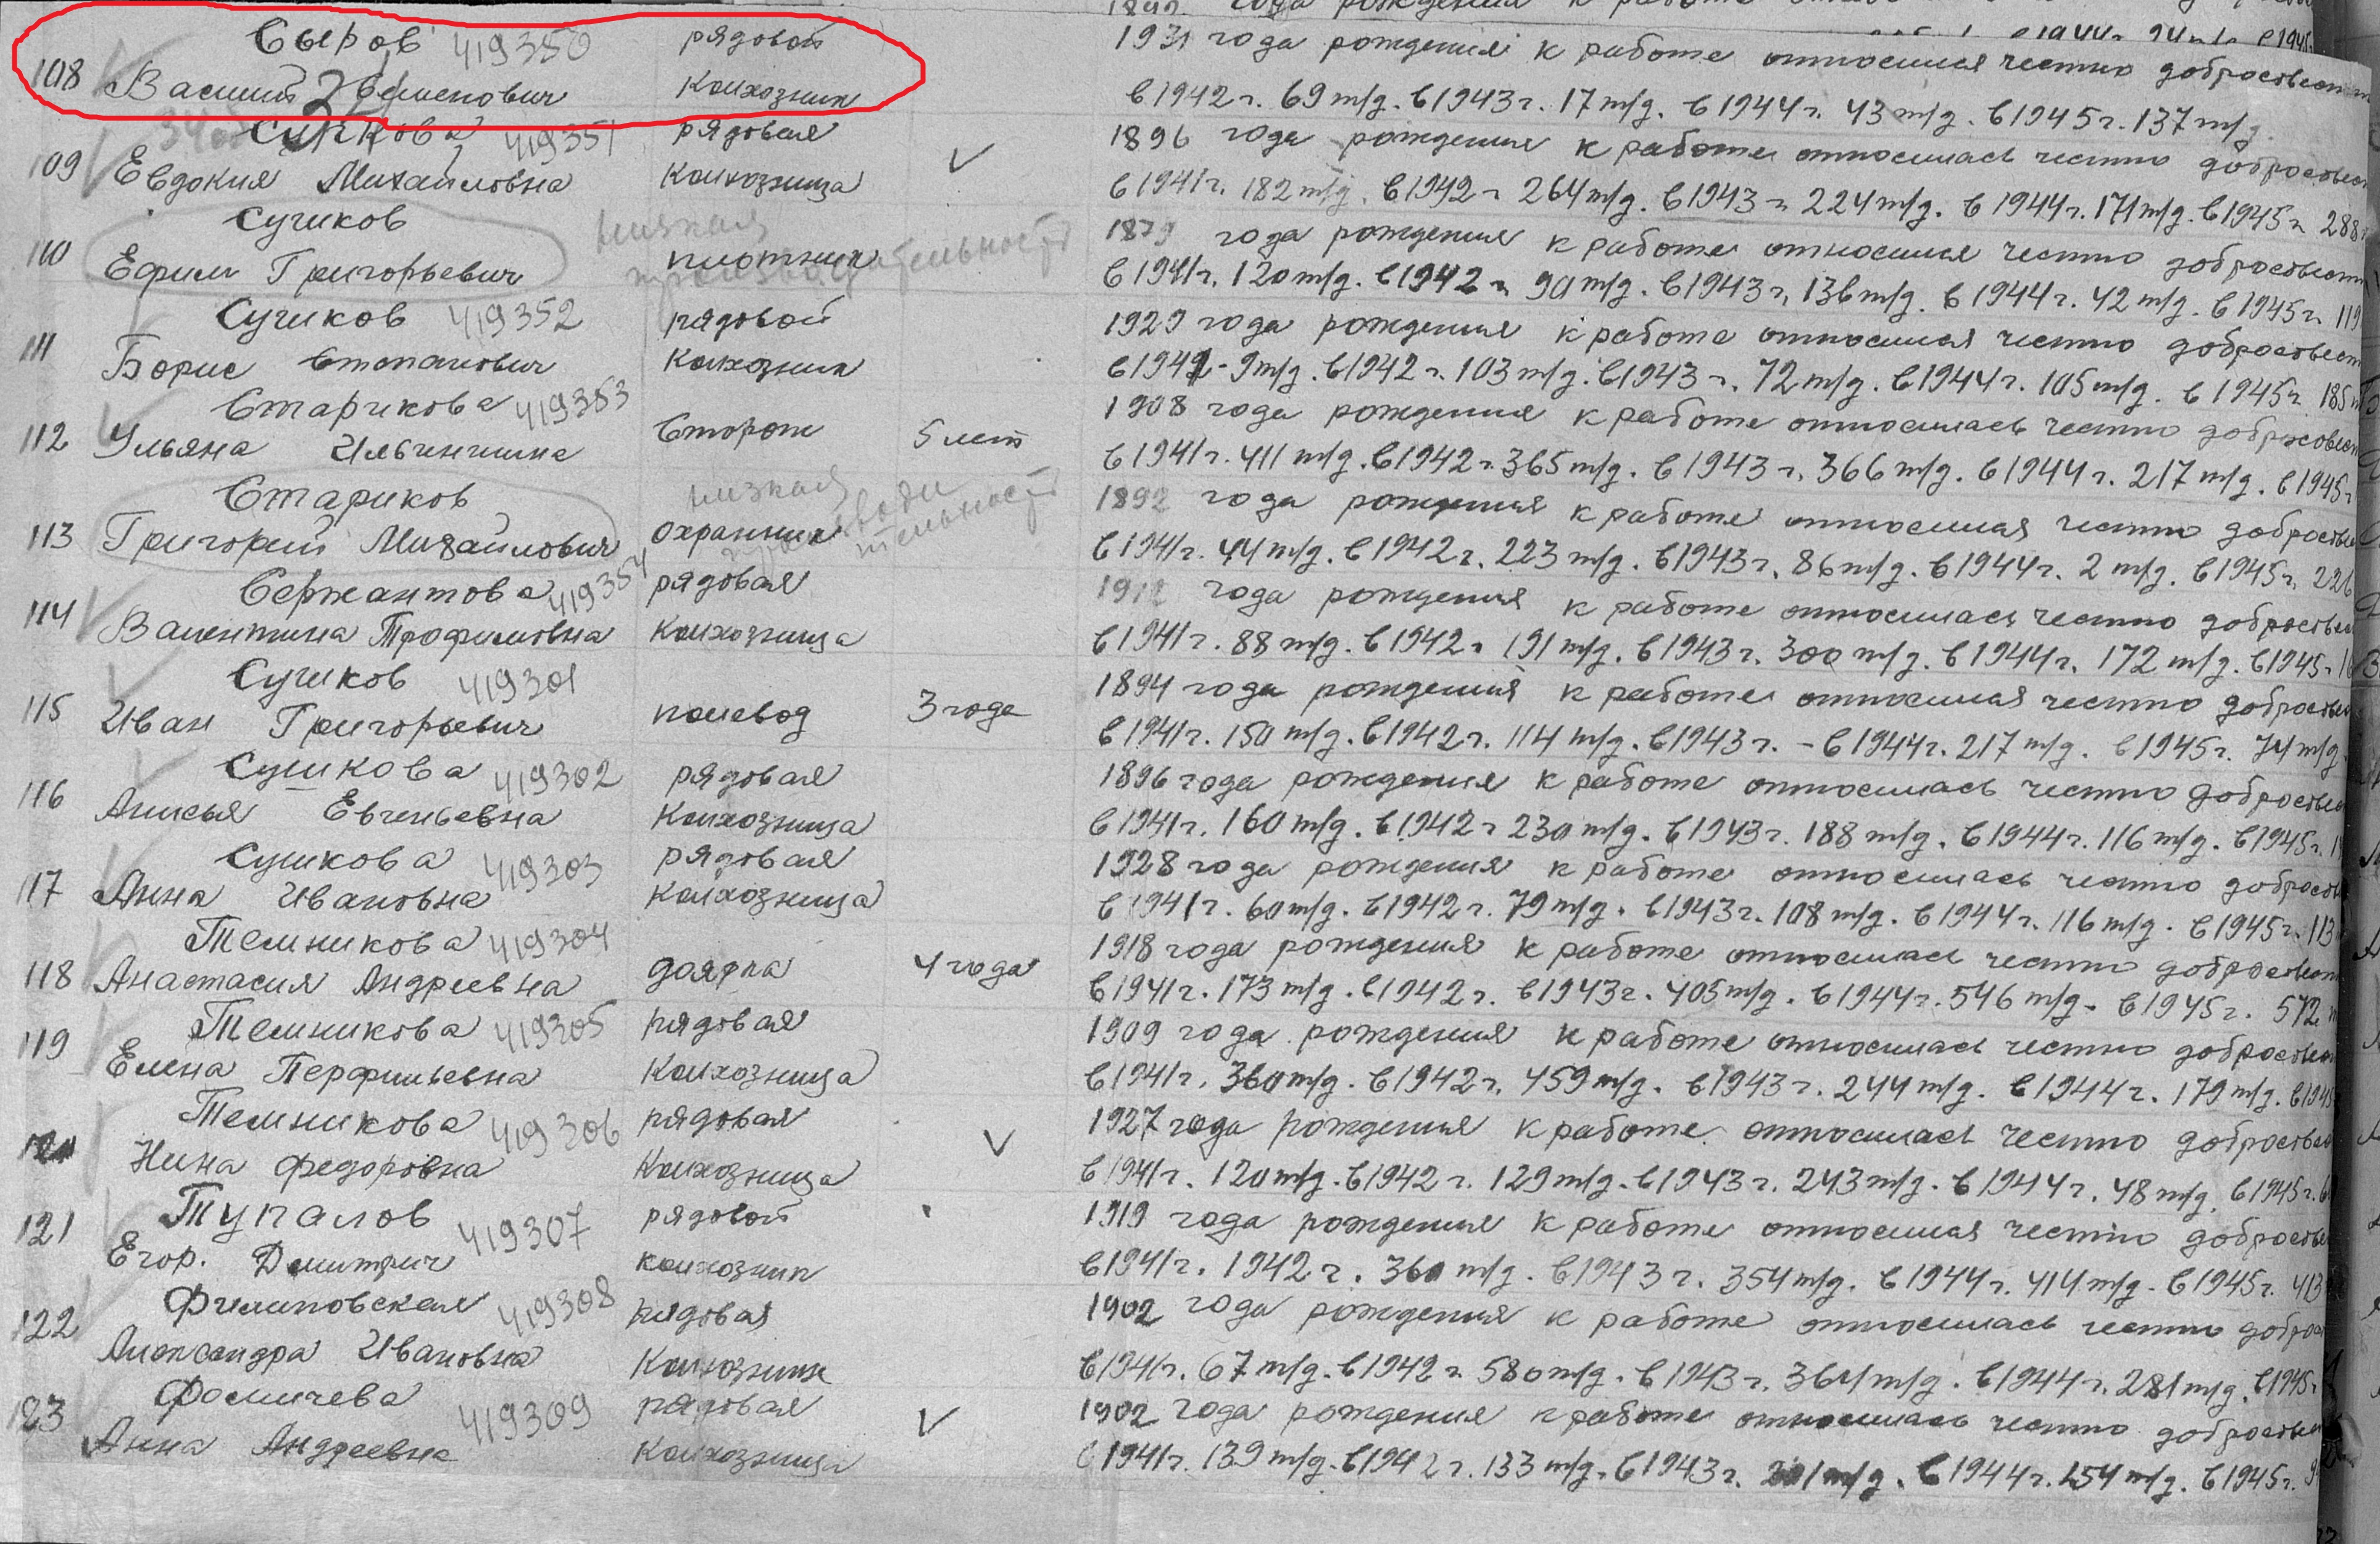 Сыров 419350 рядовой 1931 года рождения к работе относился честно добросовестно
108 Василий Семенович колхозник в 1942 г. 69 т/д. в 1943 г. 17 т/д. в 1944 г. 43 т/д. в 1945 г. 137 т/д.
Сучкова 419351 рядовая 1896 года рождения к работе относилась честно добросовест
109 Евдокия Михайловна колхозница в 1941 г. 182 т/д. в 1942 г. 264 т/д. в 1943 г. 224 т/д. в 1944 г. 171 т/д. в 1945 г. 288
Сучков низкая производительность 1879 года рождения к работе относился честно добросовестн
110 Ефим Григорьевич плотник в 1941 г. 120 т/д. в 1942 г. 90 т/д. в 1943 г. 136 т/д. в 1944 г. 42 т/д. в 1945 г. 119
Сучков 419352 рядовой 1929 года рождения к работе относился честно добросовестн
111 Борис Степанович колхозник в 1941 - 9 т/д. в 1942 г. 103 т/д. в 1943 г. 72 т/д. в 1944 г. 105 т/д. в 1945 г. 185
Старикова 419353 1908 года рождения к работе относилась честно добросовест
112 Ульяна Ильинична Сторож 5 лет в 1941 г. 411 т/д. в 1942 г. 365 т/д. в 1943 г. 366 т/д. в 1944 г. 217 т/д. в 1945 г.
Стариков низкая производительность 1892 года рождения к работе относился честно добросовес
113 Григорий Михайлович охранник в 1941 г. 44 т/д. в 1942 г. 223 т/д. в 1943 г. 86 т/д. в 1944 г. 2 т/д. в 1945 г. 226
Сержантова 419354 рядовая 1912 года рождения к работе относилась честно добросовес
114 Валентина Трофимовна колхозница в 1941 г. 88 т/д. в 1942 г. 191 т/д. в 1943 г. 300 т/д. в 1944 г. 172 т/д. в 1945 г.
Сучков 419301 1894 года рождения к работе относился честно добросовес
115 Иван Григорьевич полевод 3 года в 1941 г. 150 т/д. в 1942 г. 114 т/д. в 1943 г. - в 1944 г. 217 т/д. в 1945 г. 74 т/д.
Сушкова 419302 рядовая 1896 года рождения к работе относилась честно добросовес
116 Анисья Евгеньевна колхозница в 1941 г. 160 т/д. в 1942 г. 230 т/д. в 1943 г. 188 т/д. в 1944 г. 116 т/д. в 1945 г.
Сушкова 419303 рядовая 1928 года рождения к работе относилась честно добросов
117 Анна Ивановна колхозница в 1941 г. 60 т/д. в 1942 г. 79 т/д. в 1943 г. 108 т/д. в 1944 г. 116 т/д. в 1945 г. 113
Темникова 419304 1918 года рождения к работе относилась честно добросовест
118 Анастасия Андреевна доярка 4 года в 1941 г. 173 т/д. в 1942 г. в 1943 г. 405 т/д. в 1944 г. 546 т/д. в 1945 г. 572
Темникова 419305 рядовая 1909 года рождения к работе относилась честно добросовес
119 Елена Перфильевна колхозница в 1941 г. 360 т/д. в 1942 г. 459 т/д. в 1943 г. 244 т/д. в 1944 г. 179 т/д. в 1945
Темникова 419306 рядовая 1927 года рождения к работе относилась честно добросовес
120 Нина Федоровна колхозница в 1941 г. 120 т/д. в 1942 г. 129 т/д. в 1943 г. 243 т/д. в 1944 г. 48 т/д. в 1945 г.
Тупалов 419307 рядовой 1919 года рождения к работе относился честно добросове
121 Егор. Дмитрич колхозник в 1941 г. 1942 г. 360 т/д. в 1943 г. 354 т/д. в 1944 г. 414 т/д. в 1945 г. 413
Филиповская 419308 рядовая 1902 года рождения к работе относилась честно доброс
122 Александра Ивановна колхозник в 1941 г. 67 т/д. в 1942 г. 580 т/д. в 1943 г. 364 т/д. в 1944 г. 281 т/д. в 1945
Фомичева 419309 рядовая 1902 года рождения к работе относилась честно добросовес
123 Анна Андреевна колхозница в 1941 г. 139 т/д. в 1942 г. 133 т/д. в 1943 г. 201 т/д. в 1944 г. 154 т/д. в 1945 г.